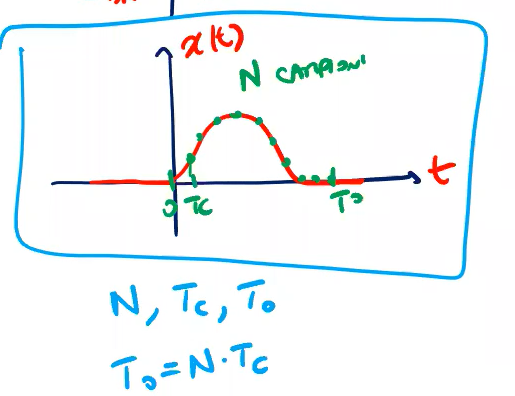 x(t)
N CAMPIONI
t
0 Tc T0
N, Tc, T0
T0 = N · Tc